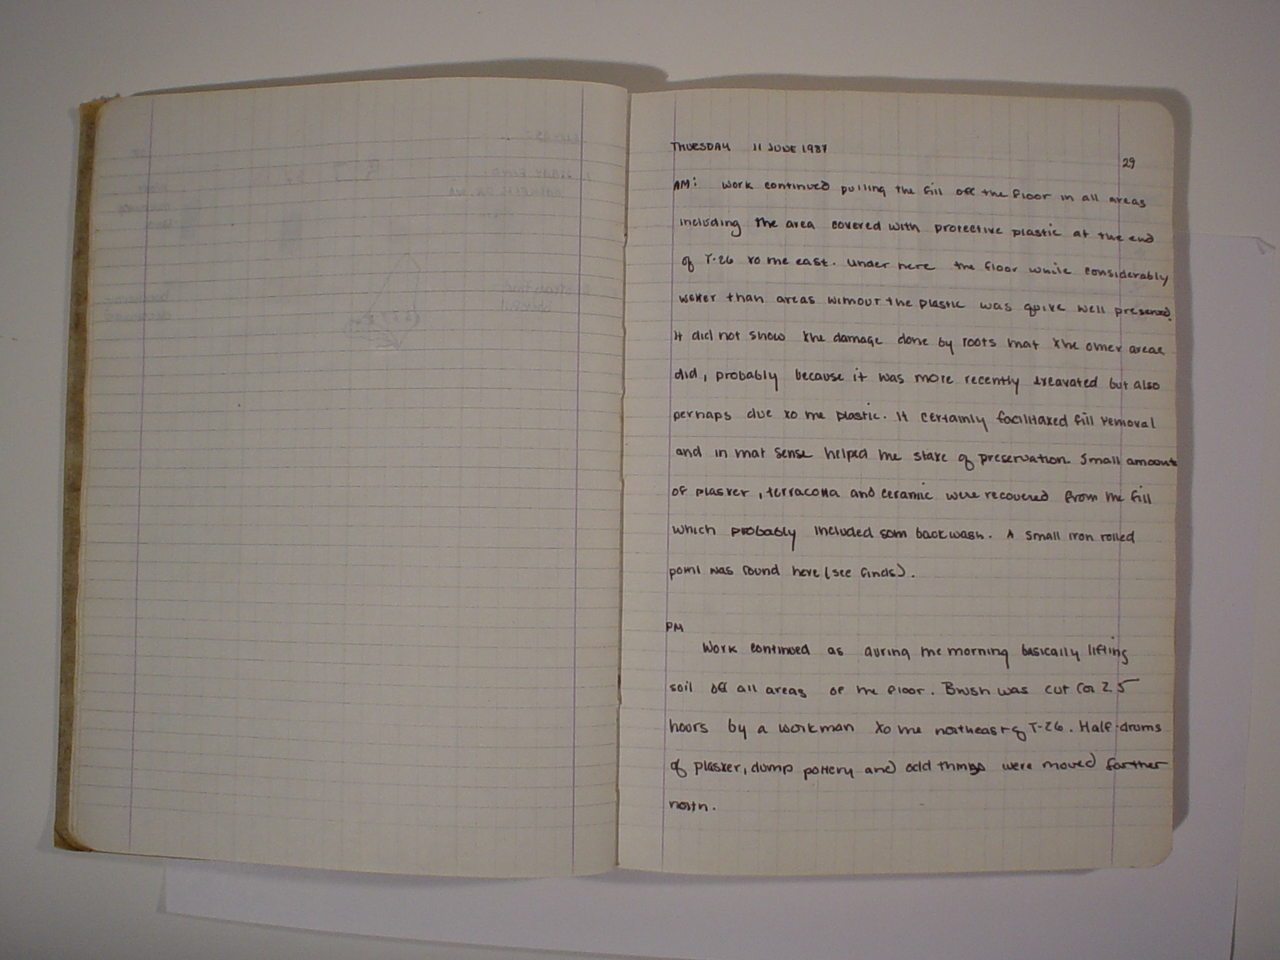 THURSDAY 11 JUNE 1987
29
AM: Work continued pulling the fill off the floor in all areas
including the area covered with protective plastic at the end
of T-26 to the east. Under here the floor while considerably
wetter than areas without the plastic was quite well preserved.
It did not show the damage done by roots that the other areas
did, probably because it was more recently excavated but also
perhaps due to the plastic. It certainly facilitated fill removal
and in that sense helped the state of preservation. Small amounts
of plaster, terracotta and ceramic were recovered from the fill
which probably included som backwash. A small iron rolled
point was found here (see finds).
PM
Work continued as during the morning basically lifting
soil off all areas of the floor. Brush was cut for 2.5
hours by a workman to the northeast of T-26. Half-drums
of plaster, dump pottery and odd things were moved farther
north.